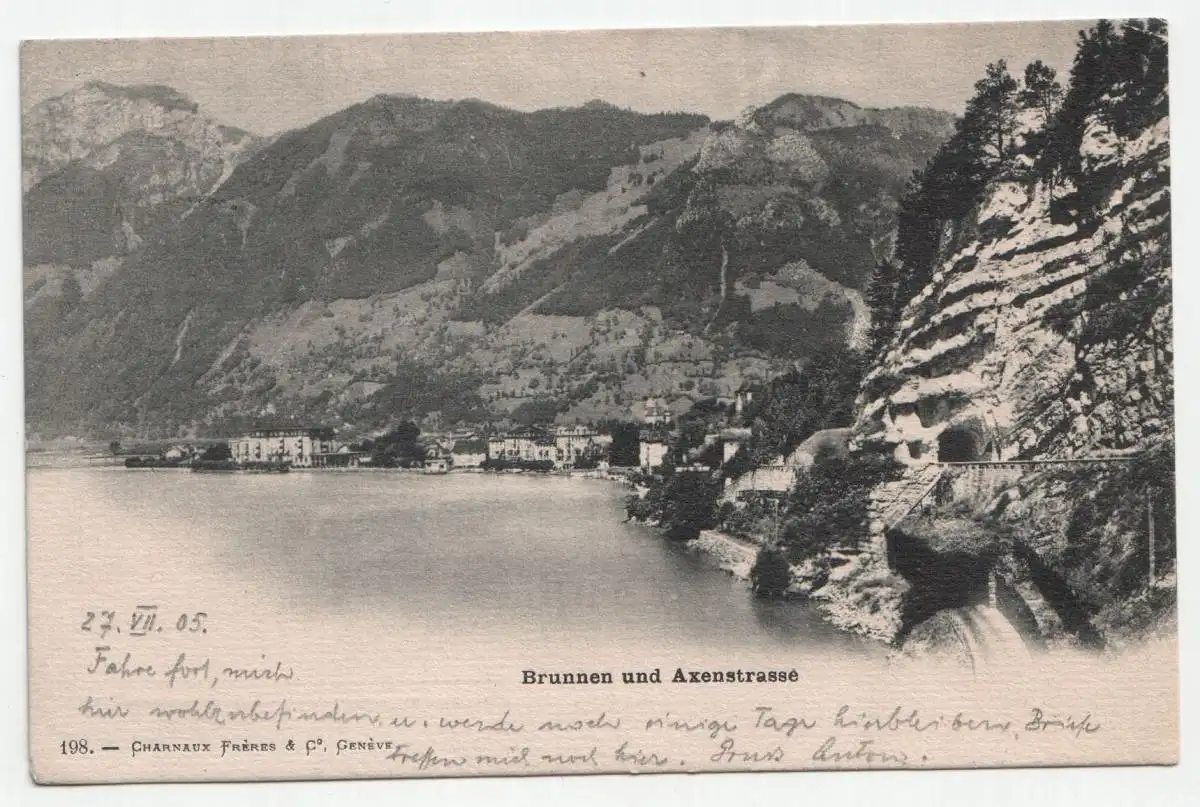 27. VII. 05.
Fahre fort, mich
Brunnen und Axenstrasse
hier wohlzubefinden u. werde noch einige Tage hierbleiben, Briefe
198. — Charnaux Frères & Cº, Genève
treffen mich noch hier. Gruss Anton.